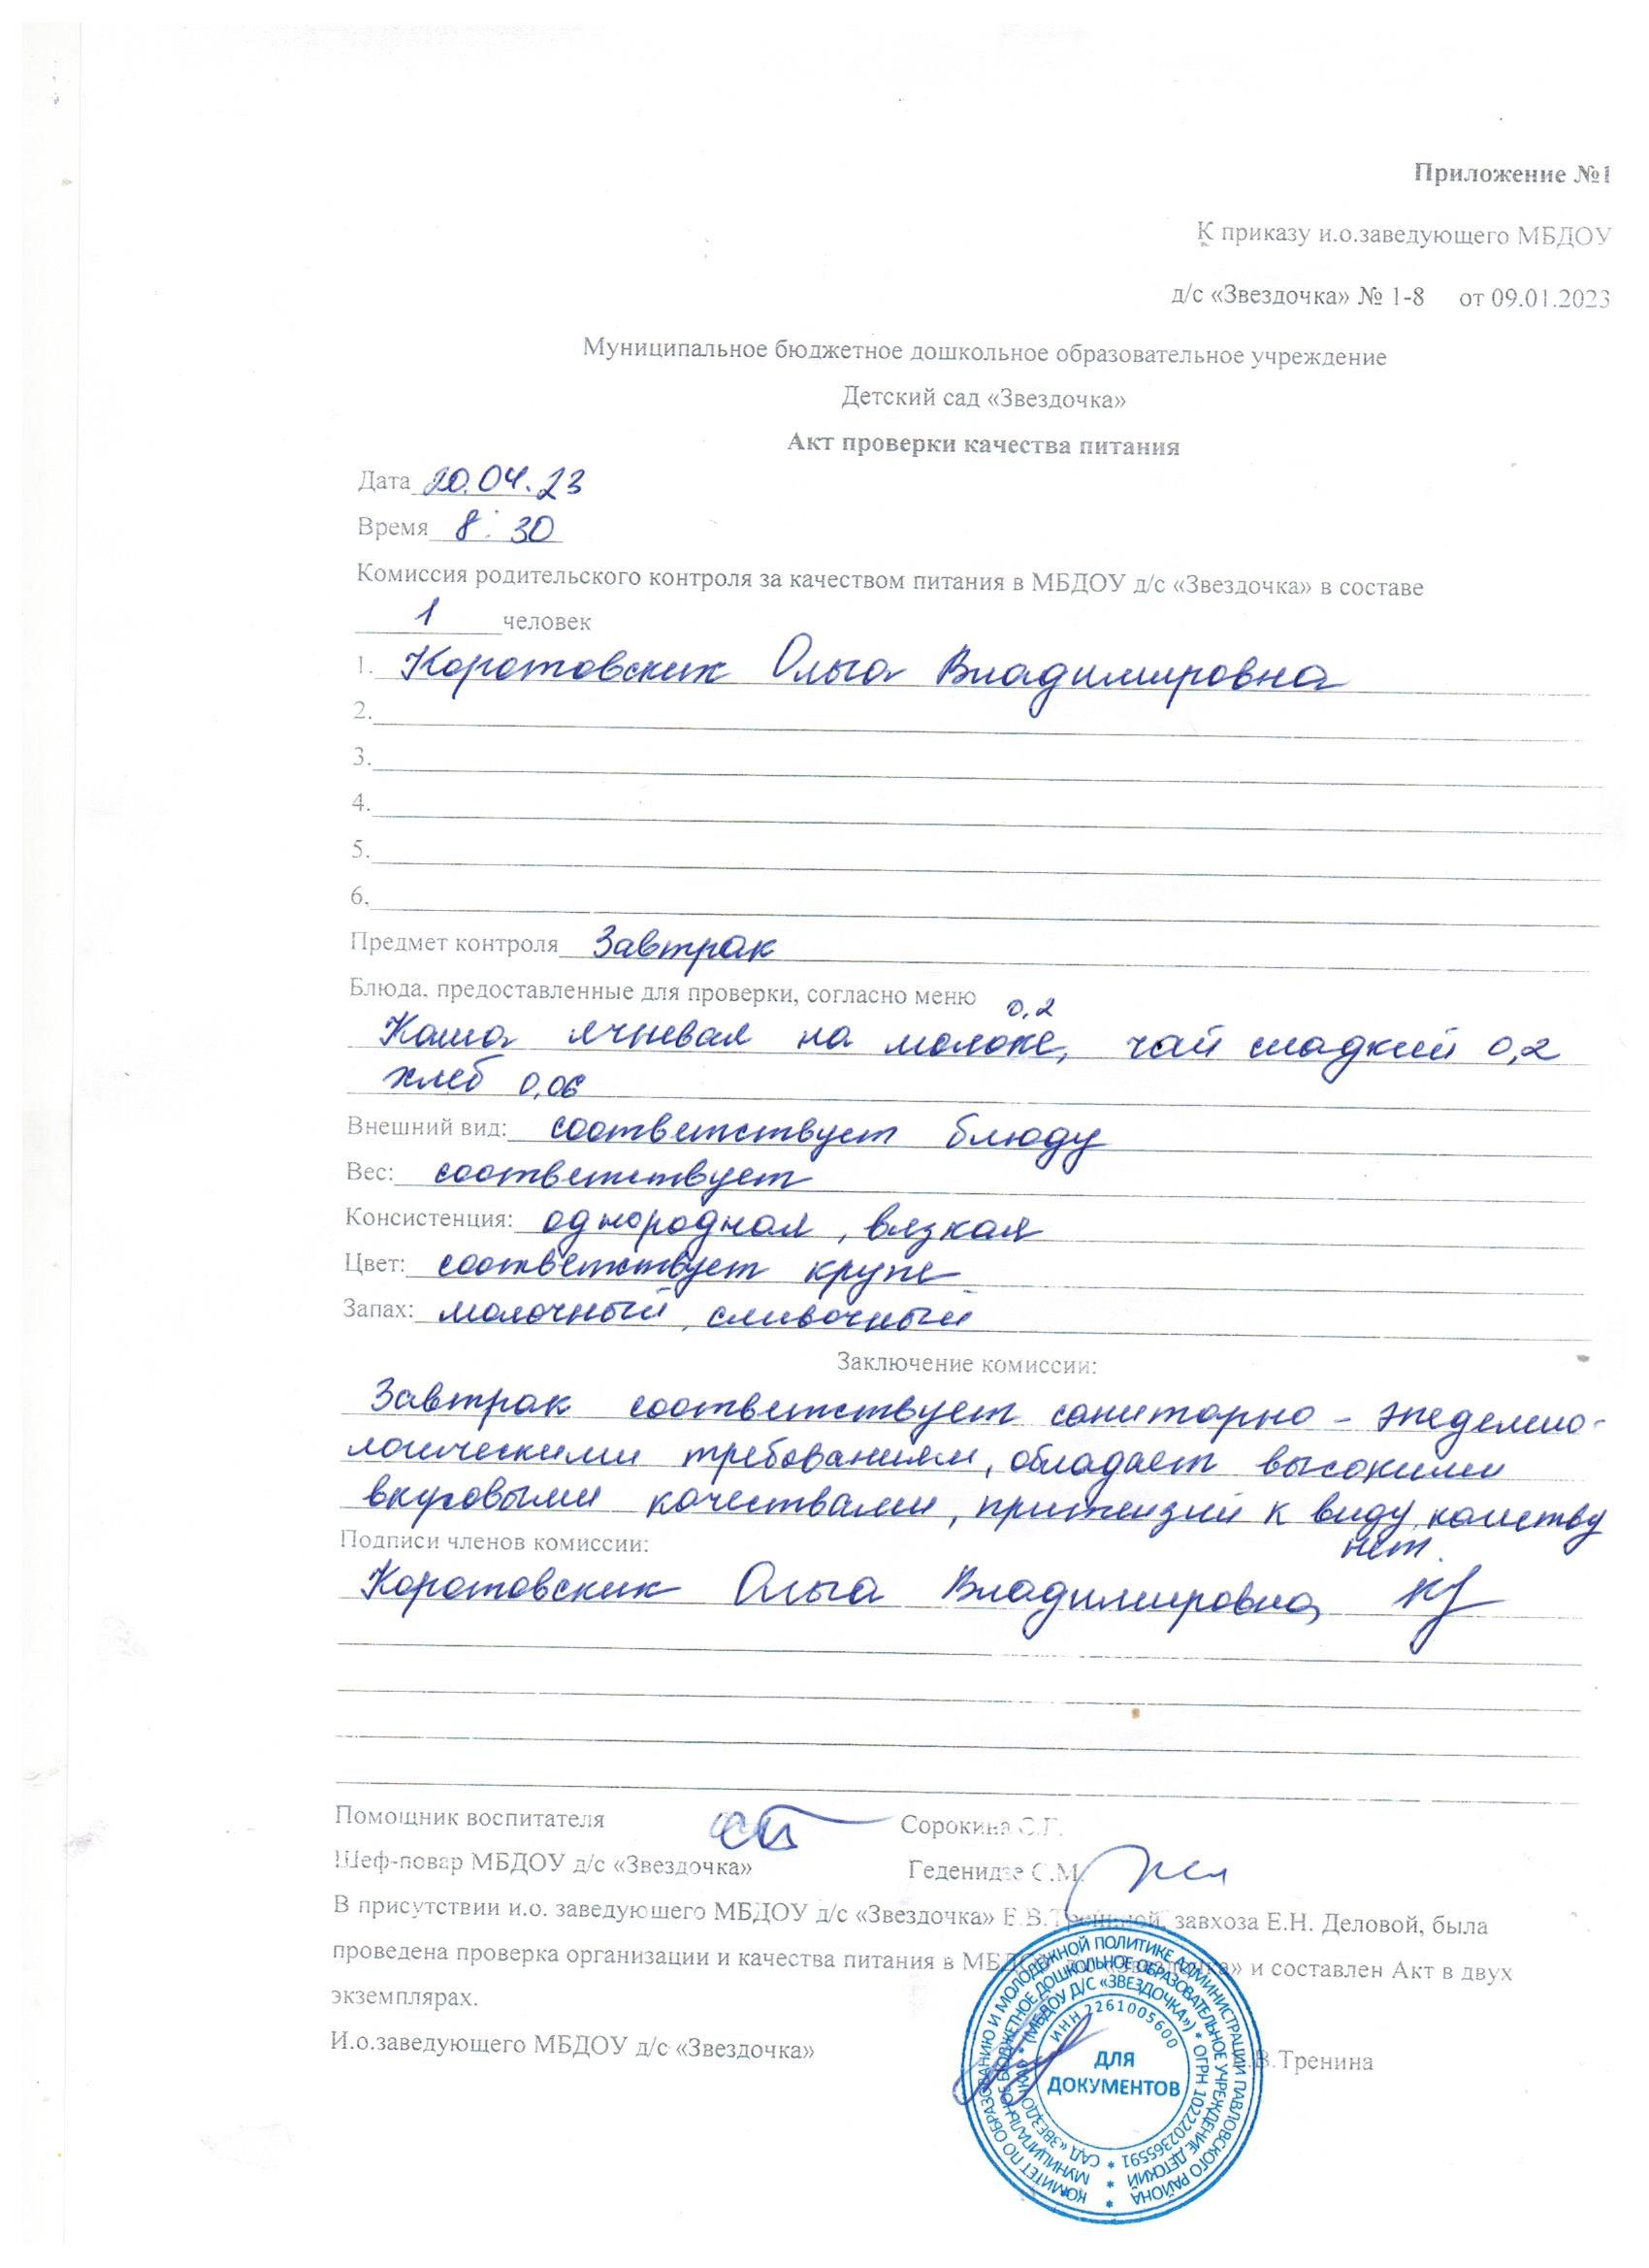 Приложение №1
К приказу и.о.заведующего МБДОУ
д/с «Звездочка» № 1-8 от 09.01.2023
Муниципальное бюджетное дошкольное образовательное учреждение
Детский сад «Звездочка»
Акт проверки качества питания
Дата 20.04.23
Время 8:30
Комиссия родительского контроля за качеством питания в МБДОУ д/с «Звездочка» в составе
1 человек
1. Коротовских Ольга Владимировна
2.
3.
4.
5.
6.
Предмет контроля Завтрак
Блюда, предоставленные для проверки, согласно меню
0,2
Каша ячневая на молоке, чай сладкий 0,2
хлеб 0,06
Внешний вид: соответствует блюду
Вес: соответствует
Консистенция: однородная, вязкая
Цвет: соответствует крупе
Запах: молочный, сливочный
Заключение комиссии:
Завтрак соответствует санитарно-эпедемио-
логическими требованиям, обладает высокими
вкусовыми качествами, притензий к виду, качеству
нет.
Подписи членов комиссии:
Коротовских Ольга Владимировна
Помощник воспитателя Сорокина
Шеф-повар МБДОУ д/с «Звездочка» Геденидзе С.М.
В присутствии и.о. заведующего МБДОУ д/с «Звездочка» Е.В.Трениной, завхоза Е.Н. Деловой, была
проведена проверка организации и качества питания в МБДОУ д/с «Звездочка» и составлен Акт в двух
экземплярах.
И.о.заведующего МБДОУ д/с «Звездочка» В.Тренина
КОМИТЕТ ПО ОБРАЗОВАНИЮ И МОЛОДЕЖНОЙ ПОЛИТИКЕ АДМИНИСТРАЦИИ ПАВЛОВСКОГО РАЙОНА
МУНИЦИПАЛЬНОЕ БЮДЖЕТНОЕ ДОШКОЛЬНОЕ ОБРАЗОВАТЕЛЬНОЕ УЧРЕЖДЕНИЕ ДЕТСКИЙ
САД «ЗВЕЗДОЧКА» * (МБДОУ Д/С «ЗВЕЗДОЧКА») * ОГРН 1022202365591 *
ИНН 2261005600
ДЛЯ
ДОКУМЕНТОВ